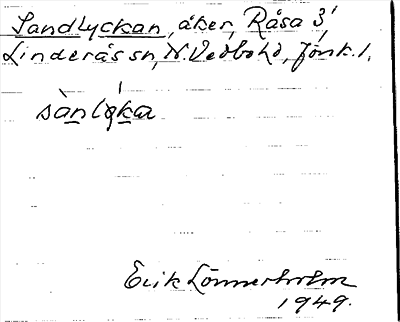 Sandlyckan, åker, Råsa 3,
Linderås sn, N. Vedbo hd, Jönk. l.
sànlyka
Erik Lönnerholm
1949.